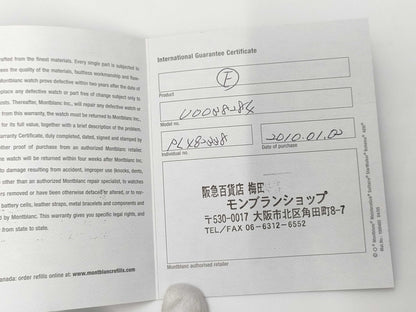 rafted from the finest materials. Every single part is subjected to
es the quality of the materials, faultless workmanship and
Montblanc watch prove defective within two years after the date of
eplace any defective watch or part free of change subject only to
osts. Thereafter, Montblanc Inc., will repair any defective watch or
from this warranty, the watch must be returned to Montblanc Inc.,
for its full value, together with a brief description of the problem.
arranty Certificate, duly completed, dated, signed and stamped by
other proof of purchase from an authorized Montblanc retailer.
e watch will be returned within four weeks after Montblanc Inc.
to damage resulting from accident, improper use (knocks, dents,
other than an authorized Montblanc repair specialist, to watches
bers removed or have been otherwise defaced or altered, or to nor-
battery cells, leather straps, metal bracelets and components and
ed by Montblanc. This warranty gives you specific legal rights, and
from state to state.
anada: order refills online at: www.montblancrefills.com
International Guarantee Certificate
F
Product
Model no.
PL
2010.01.02
Individual no.
Date of purchase
阪急百貨店 梅田
モンブランショップ
〒530-0017 大阪市北区角田町8-7
TEL/FAX 06-6312-6552
Montblanc authorised retailer